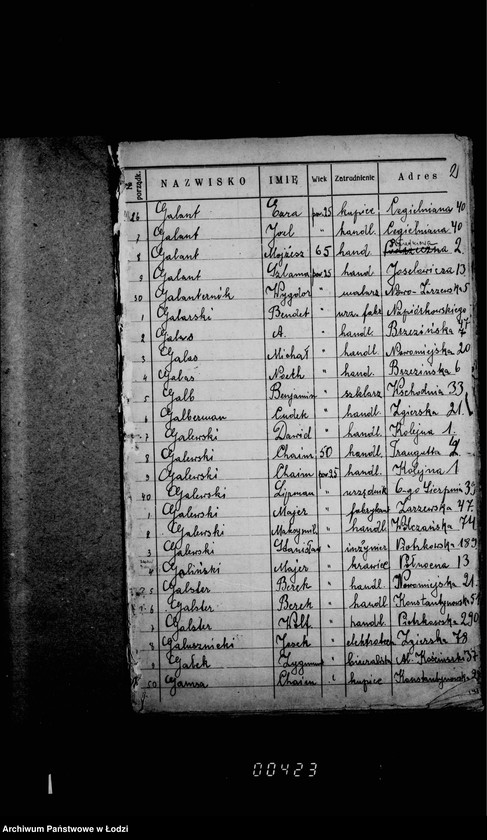 21
№ porządk. NAZWISKO IMIĘ Wiek Zatrudnienie Adres
26 Galant Ezra pow 25 kupiec Cegielniana 40
7 Galant Joel " handl. Cegielniana 40
8 Galant Mojżesz 65 hand. 2
9 Galant Szlama pow 25 hand. Joselewicza 13
30 Galanternik Wygdor " malarz Nowo-Zarzewska 5
1 Galarski Bendet " urz. Napiórkowskiego
2 Galas A. " handl. Brzezińska
3 Galas Michał " handl. Nowomiejska 20
4 Galas Noech " hand. Brzezińska 6
5 Galb Benjamin " szklarz Wschodnia 33
6 Galberman Cudek " handl. Zgierska 21
7 Galewski Dawid " handl. Kolejna 1.
8 Galewski Chaim 50 handl. Traugutta 2
9 Galewski Chaim pow 25 handl. Kolejna 1
40 Galewski Lipman " urzędnik 6-go Sierpnia
1 Galewski Majer " fabrykant Zarzewska 47.
2 Galewski Maksymil. " handl. Wólczańska 74
3 Galewski Stanisław " inżynier Piotrkowska 189
4 Galiński Majer " krawiec Północna 13
5 Galster Berek " handl. Nowomiejska 21
6 Galster Berek " handl. Konstantynowska 54
7 Galster Wolf " handl. Piotrkowska 290
8 Gałusznicki Josek " elektrotech Zgierska 78
9 Gałek Zygmunt " Al. Kościuszki 37
50 Gamza Chaim " kupiec Konstantynowska
00423
Archiwum Państwowe w Łodzi